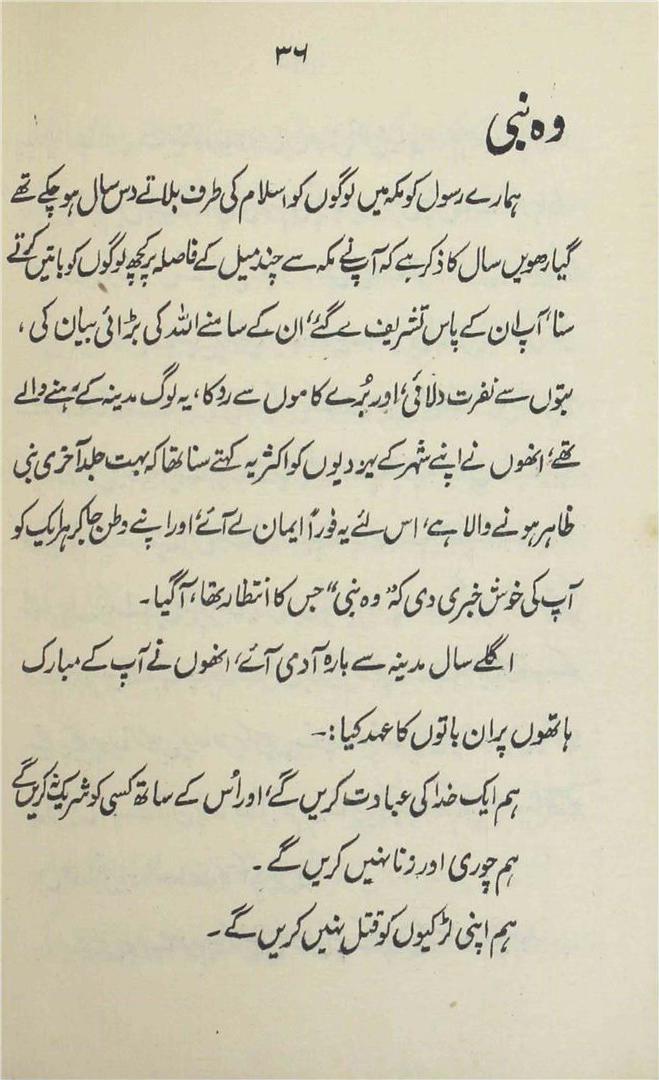 ۳۶
وہ نبی
ہمارے رسول کو مکہ میں لوگوں کو اسلام کی طرف بلاتے دس سال ہو چکے تھے
گیارھویں سال کا ذکر ہے کہ آپ نے مکہ سے چند میل کے فاصلہ پر کچھ لوگوں کو باتیں کرتے
سنا، آپ ان کے پاس تشریف لے گئے، ان کے سامنے اللہ کی بڑائی بیان کی،
بتوں سے نفرت دلائی، اور بُرے کاموں سے روکا، یہ لوگ مدینہ کے رہنے والے
تھے، انھوں نے اپنے شہر کے یہودیوں کو اکثر یہ کہتے سنا تھا کہ بہت جلد آخری نبی
ظاہر ہونے والا ہے، اس لئے یہ فوراً ایمان لے آئے، اور اپنے وطن جا کر ہر ایک کو
آپ کی خوش خبری دی کہ "وہ نبی" جس کا انتظار تھا، آ گیا۔
اگلے سال مدینہ سے بارہ آدمی آئے، انھوں نے آپ کے مبارک
ہاتھوں پر ان باتوں کا عہد کیا:۔
ہم ایک خدا کی عبادت کریں گے، اور اُس کے ساتھ کسی کو شریک نہ کریں گے
ہم چوری اور زنا نہیں کریں گے۔
ہم اپنی لڑکیوں کو قتل نہیں کریں گے۔